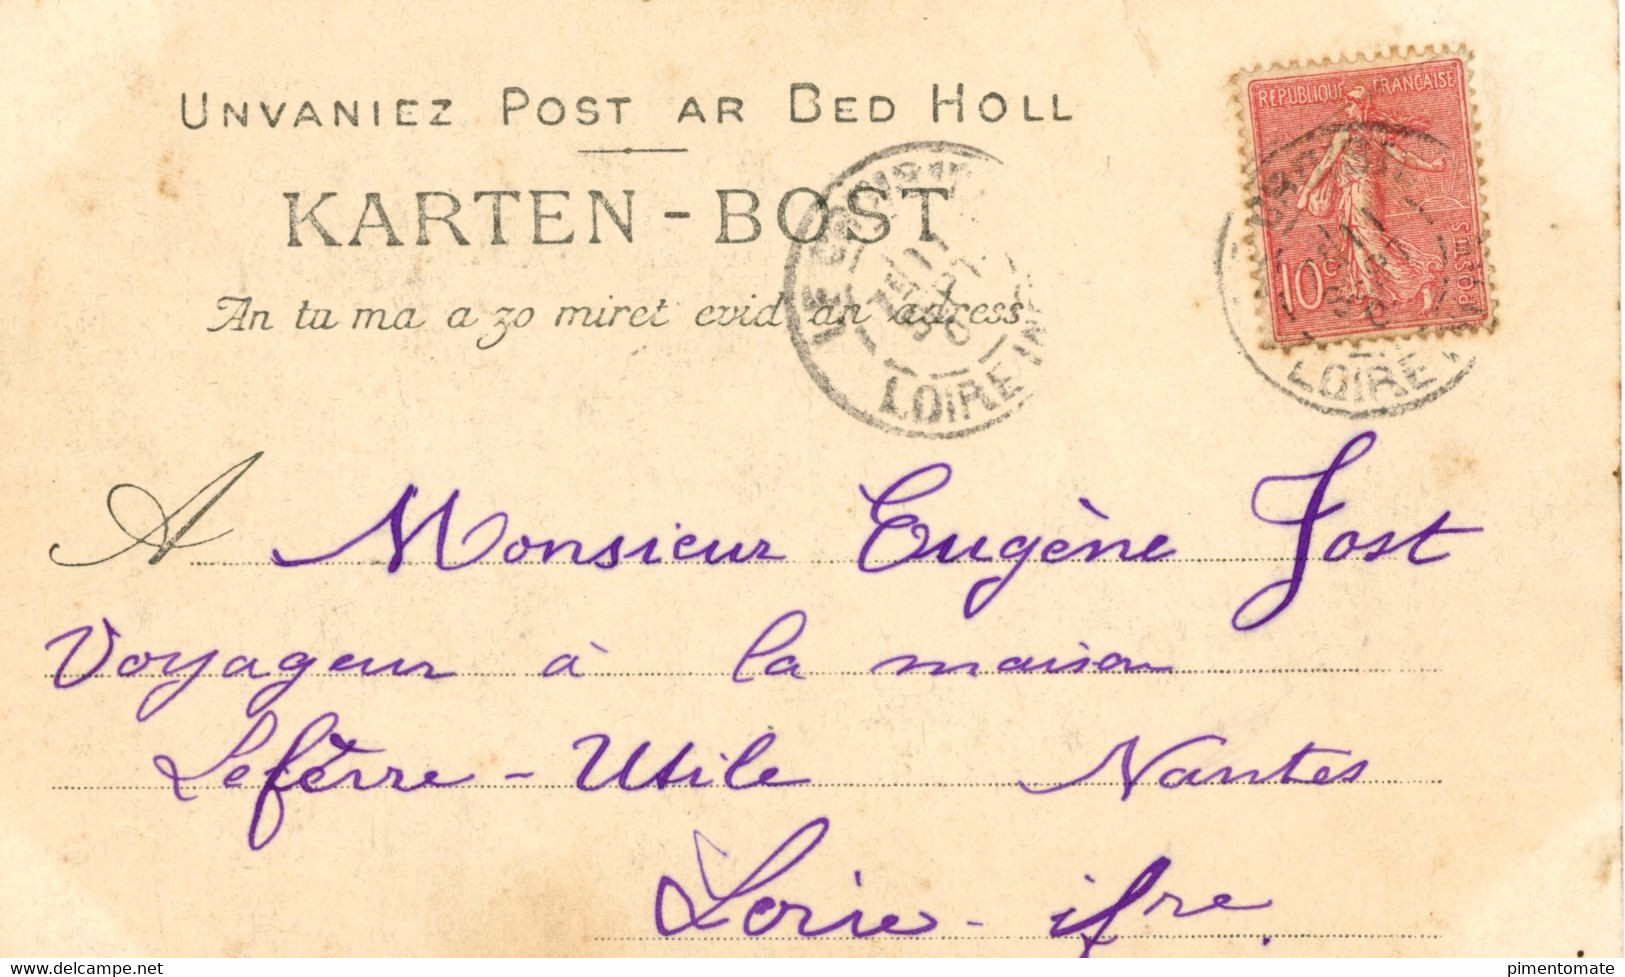 UNVANIEZ POST AR BED HOLL
KARTEN-BOST
An tu ma a zo miret evid an adress
REPUBLIQUE FRANÇAISE
POSTES
10 c
LOIRE IN
LOIRE
A Monsieur Eugène Jost
Voyageur à la maison
Lefèvre-Utile Nantes
Loire-ifre.
pimentomate